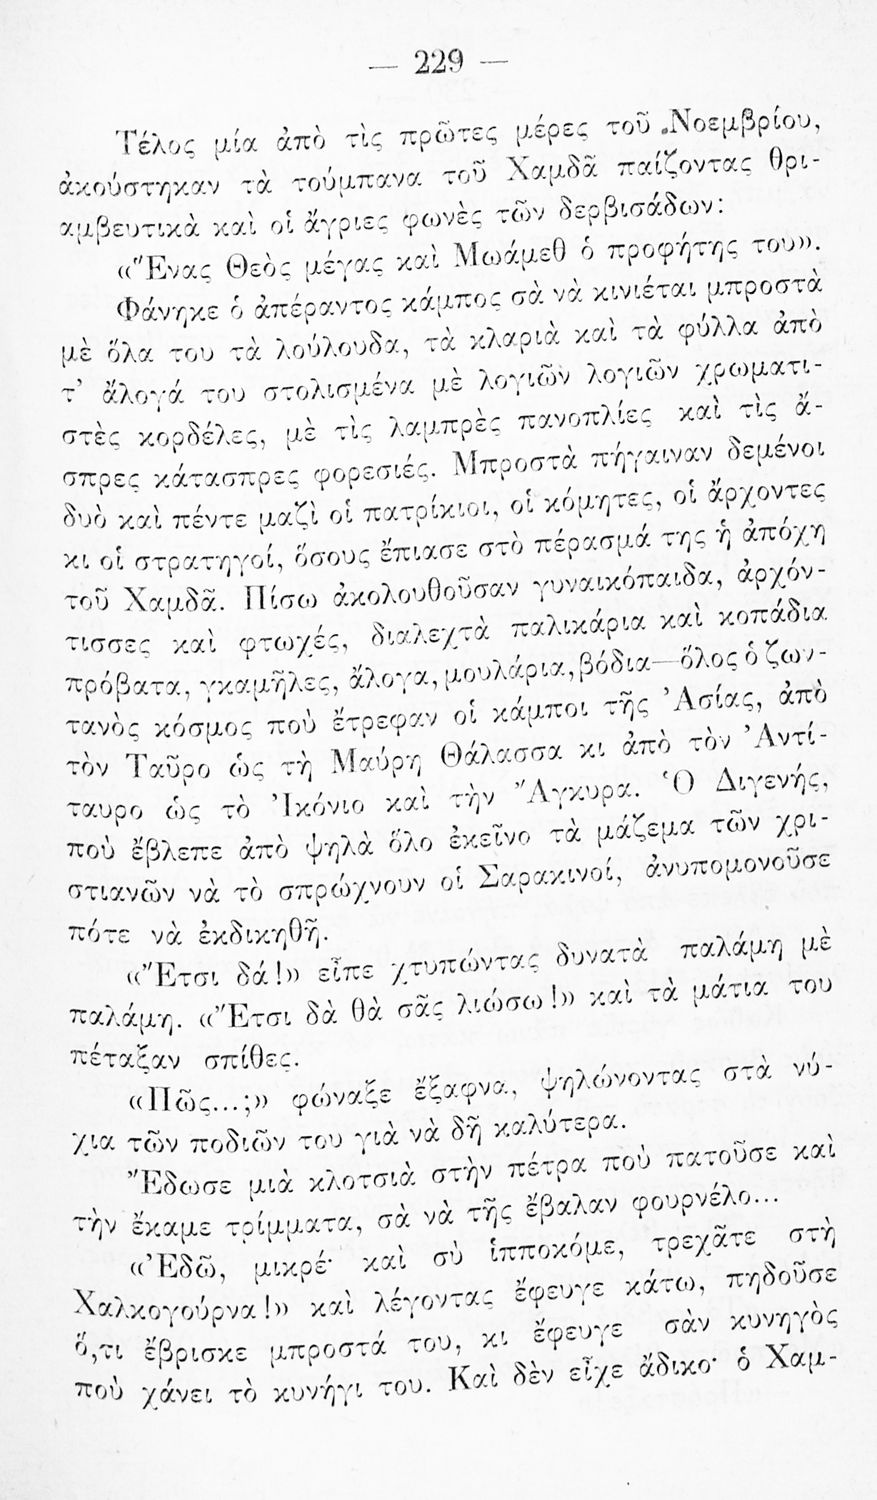 — 229 —
Τέλος μία ἀπὸ τὶς πρῶτες μέρες τοῦ Νοεμβρίου,
ἀκούστηκαν τὰ τούμπανα τοῦ Χαμδᾶ παίζοντας θρι-
αμβευτικὰ καὶ οἱ ἄγριες φωνὲς τῶν δερβισάδων:
«Ἕνας Θεὸς μέγας καὶ Μωάμεθ ὁ προφήτης του».
Φάνηκε ὁ ἀπέραντος κάμπος σὰ νὰ κινιέται μπροστὰ
μὲ ὅλα του τὰ λούλουδα, τὰ κλαριὰ καὶ τὰ φύλλα ἀπὸ
τ' ἄλογά του στολισμένα μὲ λογιῶν λογιῶν χρωματι-
στὲς κορδέλες, μὲ τὶς λαμπρὲς πανοπλίες καὶ τὶς ἄ-
σπρες κάτασπρες φορεσιές. Μπροστὰ πήγαιναν δεμένοι
δυὸ καὶ πέντε μαζὶ οἱ πατρίκιοι, οἱ κόμητες, οἱ ἄρχοντες
κι οἱ στρατηγοί, ὅσους ἔπιασε στὸ πέρασμά της ἡ ἀπόχη
τοῦ Χαμδᾶ. Πίσω ἀκολουθοῦσαν γυναικόπαιδα, ἀρχόν-
τισσες καὶ φτωχές, διαλεχτὰ παλικάρια καὶ κοπάδια
πρόβατα, γκαμῆλες, ἄλογα, μουλάρια, βόδια—ὅλος ὁ ζων-
τανὸς κόσμος ποὺ ἔτρεφαν οἱ κάμποι τῆς Ἀσίας, ἀπὸ
τὸν Ταῦρο ὡς τὴ Μαύρη Θάλασσα κι ἀπὸ τὸν Ἀντί-
ταυρο ὡς τὸ Ἰκόνιο καὶ τὴν Ἄγκυρα. Ὁ Διγενής,
ποὺ ἔβλεπε ἀπὸ ψηλὰ ὅλο ἐκεῖνο τὰ μάζεμα τῶν χρι-
στιανῶν νὰ τὸ σπρώχνουν οἱ Σαρακινοί, ἀνυπομονοῦσε
πότε νὰ ἐκδικηθῆ.
«Ἔτσι δά!» εἶπε χτυπώντας δυνατὰ παλάμη μὲ
παλάμη. «Ἔτσι δὰ θὰ σᾶς λιώσω!» καὶ τὰ μάτια του
πέταξαν σπίθες.
«Πῶς...;» φώναξε ἔξαφνα, ψηλώνοντας στὰ νύ-
χια τῶν ποδιῶν του γιὰ νὰ δῆ καλύτερα.
Ἔδωσε μιὰ κλοτσιὰ στὴν πέτρα ποὺ πατοῦσε καὶ
τὴν ἔκαμε τρίμματα, σὰ νὰ τῆς ἔβαλαν φουρνέλο...
«Ἐδῶ, μικρέ· καὶ σὺ ἱπποκόμε, τρεχᾶτε στὴ
Χαλκογούρνα!» καὶ λέγοντας ἔφευγε κάτω, πηδοῦσε
ὅ,τι ἔβρισκε μπροστά του, κι ἔφευγε σὰν κυνηγὸς
ποὺ χάνει τὸ κυνήγι του. Καὶ δὲν εἶχε ἄδικο· ὁ Χαμ-